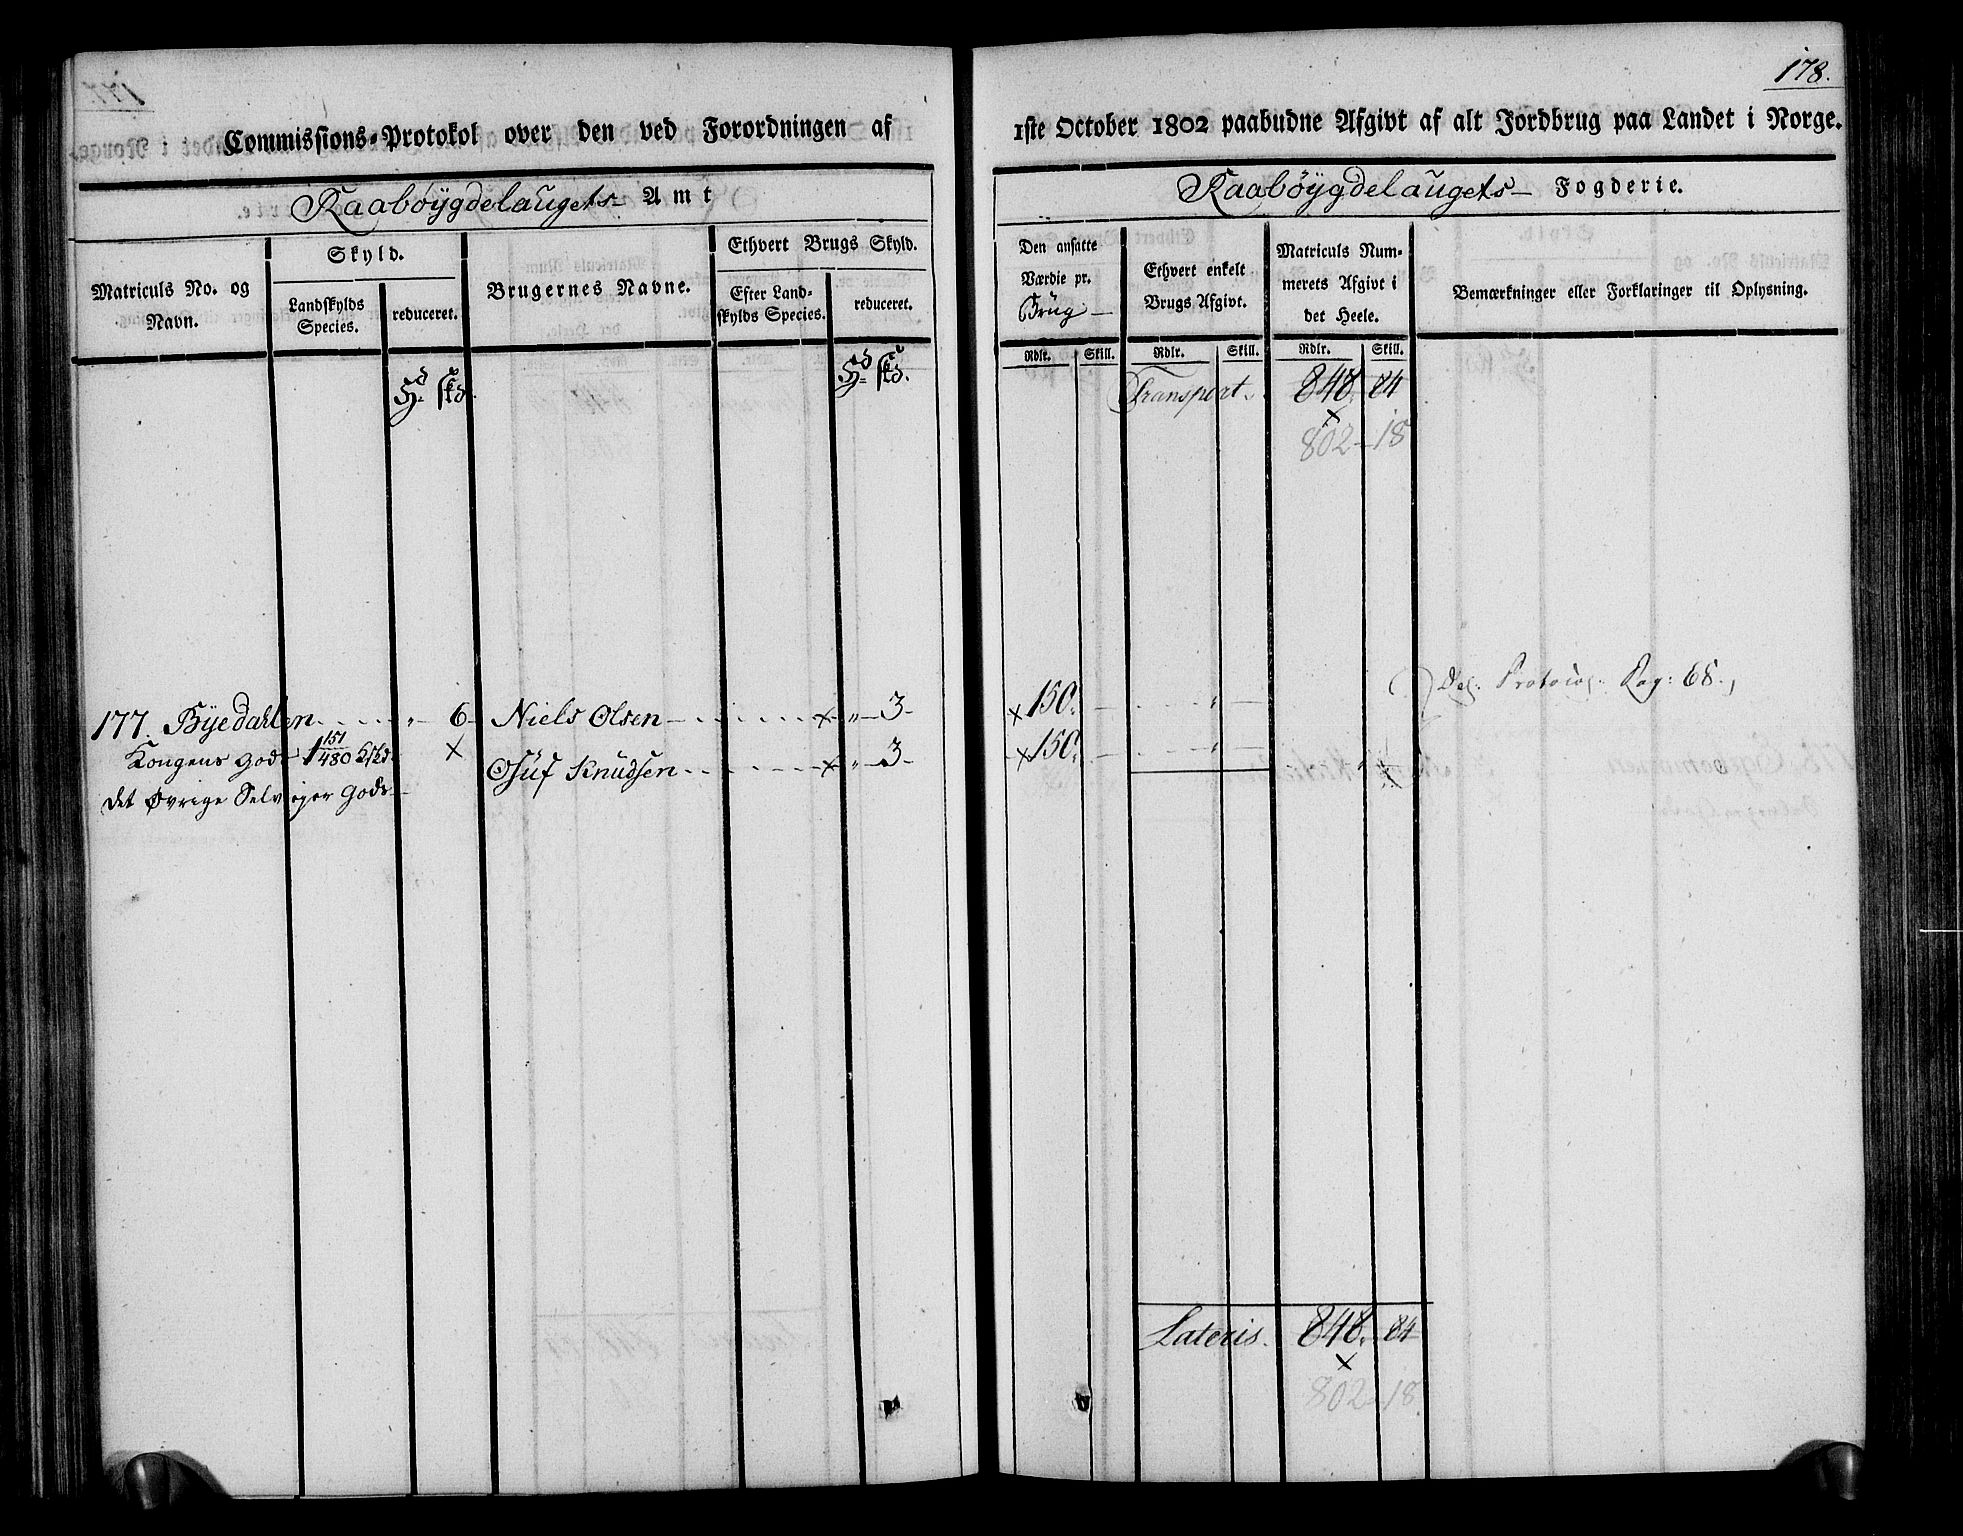 178.
Commissions-Protokol over den ved Forordningen af 1ste October 1802 paabudne Afgivt af alt Jordbrug paa Landet i Norge.
Raabøygdelaugets Amt
Raabøygdelaugets Fogderie.
Matriculs No. og Navn.
Skyld.
Landskylds Species.
reduceret.
Brugernes Navne.
Ethvert Brugs Skyld.
Efter Landskylds Species.
reduceret.
Den ansatte Værdie pr. Brüg
Ethvert enkelt Brugs Afgivt.
Matriculs Nummerets Afgivt i det Heele.
Bemærkninger eller Forklaringer til Oplysning.
Rdlr. Skill. Rdlr. Skill. Rdlr. Skill.
Hd skd. Hd skd.
Transport. 848. 84
802-18
177. Byedahlen " 6 Niels Olsen × " 3 × 150. "
Del. Protocol. Pag: 68.
Kongens Gods 1 151/480 × Osüf Knudsen × " 3 × 150. "
det Øvrige Selvejer Gods
Lateris. 848. 84
802-18